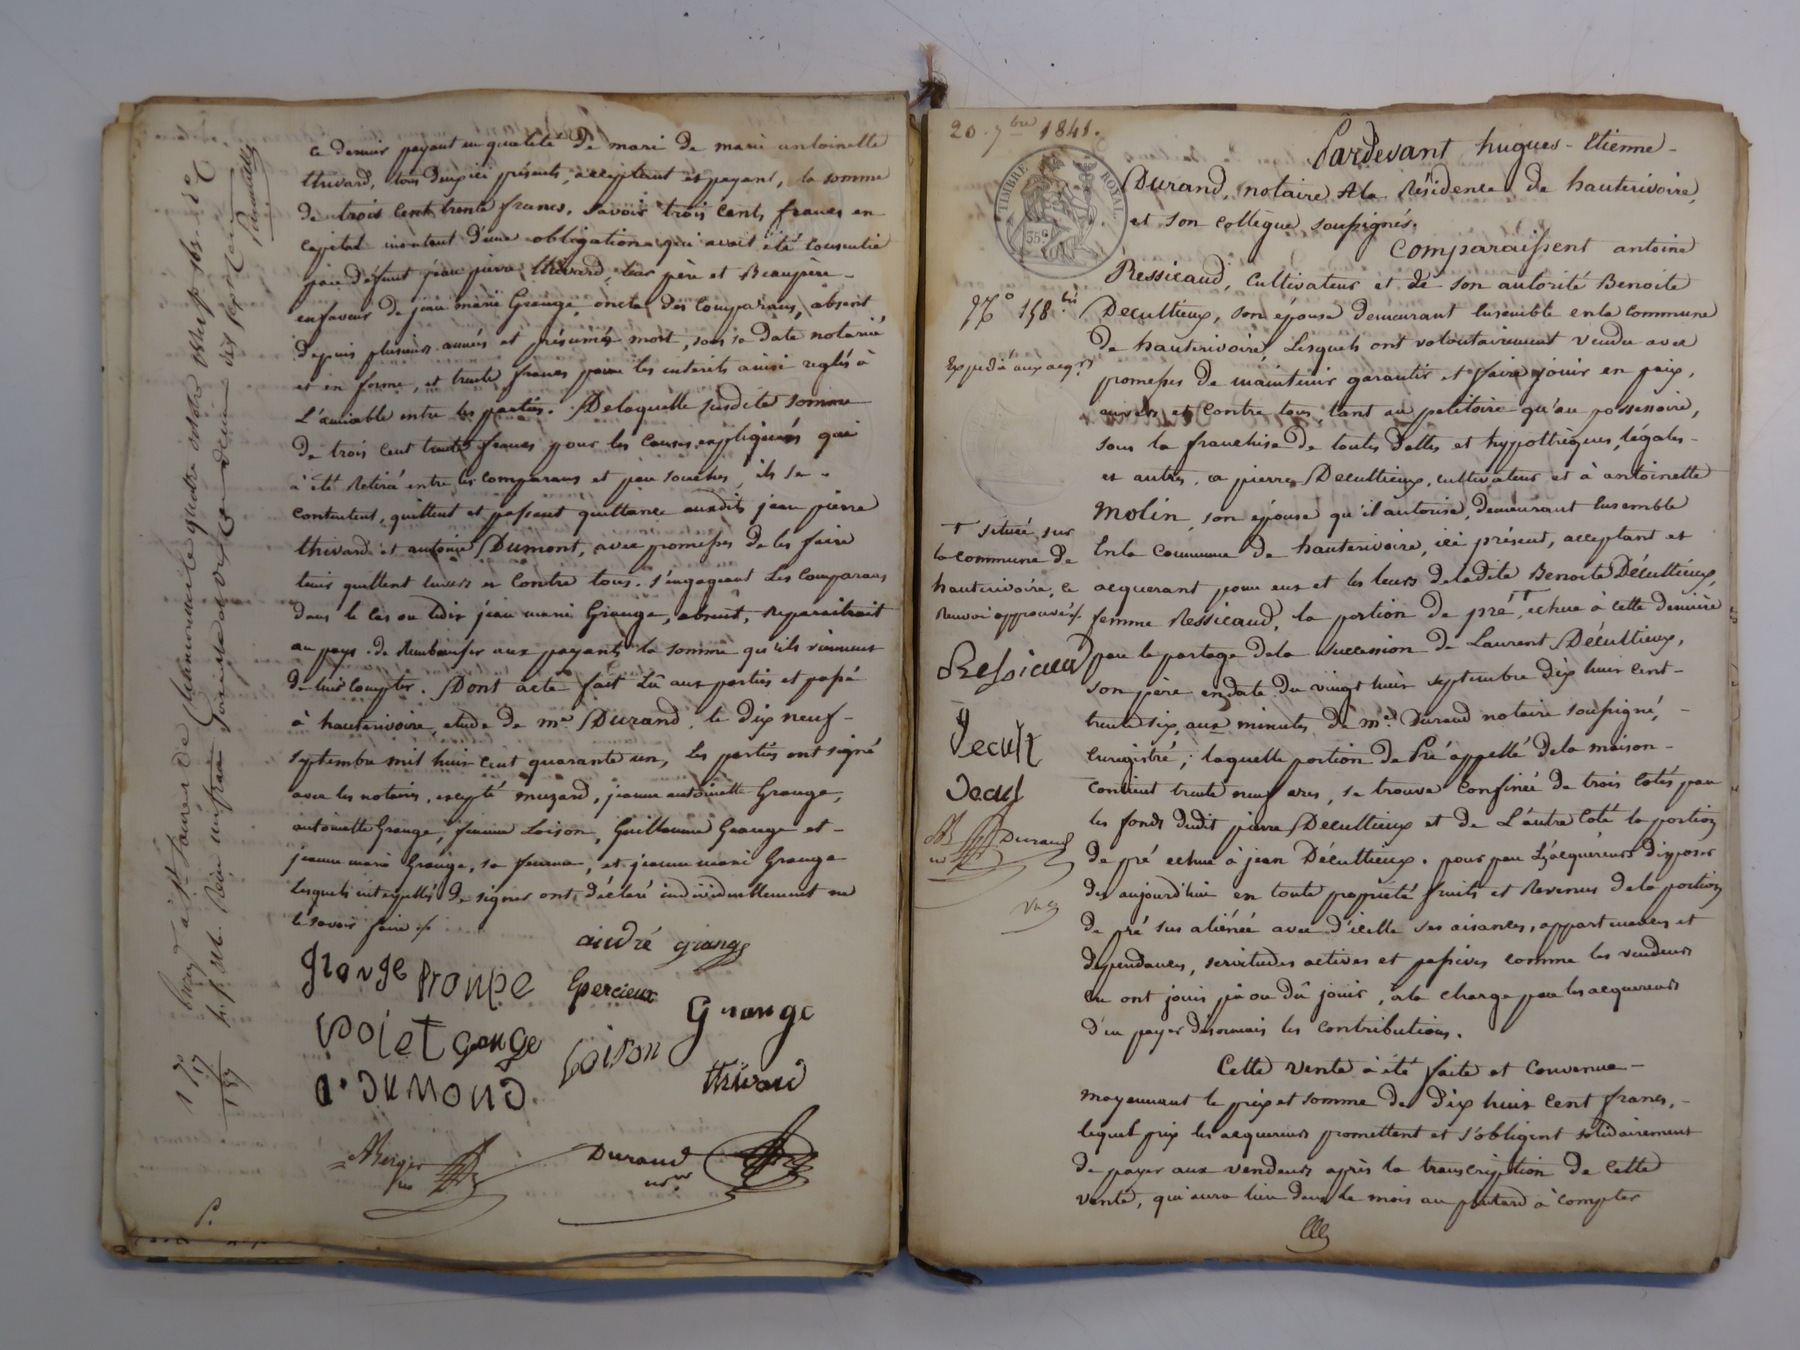 ce dernier payant en qualité de mari de marie antoinette
thivard, tous deux ici présents, acceptant et payant, la somme
de trois cent trente francs, Savoir trois cents francs en
capital montant d'une obligation qui avait été consentie
par défunt jean pierre thivard, leur père et Beaupère
en faveur de jean marie Grange, oncle des comparans, absent
depuis plusieurs années et présumé mort, sous sa date notarié
et en forme, et trente francs pour les intérêts ainsi réglés à
L'amiable entre les parties. De laquelle susdite somme
de trois cent trente francs pour les causes expliquées qui
à été Retiré entre les comparans et par souches, ils se
contentent, quittent et passent quittance auxdits jean pierre
thivard et antoine Dumont, avec promesses de les faire
tenir quittent envers et Contre tous. S'engageant Les Comparans
dans le cas ou ledit jean marie Grange, absent, reparaitrait
au pays de Rembourser aux payants la somme qu'ils viennent
de leur compter. Dont acte fait Lû aux parties et passé
à hauterivoire, etude de me Durand, le dix neuf
septembre mil huit cent quarante un, Les parties ont signé
avec les notaires, excepté muzard, jeanne antoinette Grange,
antoinette Grange, femme Loison, Guillaume Grange et
jeanne marie Grange, sa femme, et jeanne marie Grange
Lesquels interpellés de signer ont déclaré individuellement ne
le savoir faire
andré grange
grange
Grange
Loison
thivard
a. Dumond
Durand
nre
20. 7bre 1841.
TIMBRE ROYAL
35c
Pardevant hugues-Etienne
Durand, notaire A la Résidence de hauterivoire,
et son collègue soussignés.
Comparaissent antoine
Ressicaud, Cultivateur et de son autorité Benoite
Decultieux, son épouse demeurant Ensemble en la Commune
de hauterivoire Lesquels ont volontairement vendu avec
promesses de maintenir garantir et faire jouir en paix,
envers et contre tous, tant au petitoire qu'au possessoire,
sous la franchise de toutes dettes et hypothèques, légales
et autres, a pierre Decultieux, cultivateur et à antoinette
Molin, son épouse qu'il autorise, demeurant Ensemble
En la Commune de hauterivoire, ici présent, acceptant et
acquerant pour eux et les leurs de ladite Benoite Décultieux,
femme Ressicaud, la portion de pré, † echue à cette dernière
par le partage de la succession de Laurent Décultieux,
son père, en date du vingt huit septembre dix huit cent
trente six, aux minutes de me. Durand notaire soussigné,
Enregistré; laquelle portion de Pré appellé de la maison
contient trente neuf ares, se trouve Confinée de trois côtés par
les fonds dudit pierre Decultieux et de L'autre coté la portion
de pré echue à jean Décultieux. pour par Les acquereurs disposer
dès aujourd'hui en toute propriété fruits et Revenus de la portion
de pré sus aliénée avec d'icelle ses aisances, appartenances et
dependances, servitudes actives et passives comme les vendeurs
en ont jouis pû ou dû jouir, à la charge par les acquereurs
d'en payer désormais les contributions.
Cette vente à été faite et convenue
moyennant le prix et somme de dix huit cent francs,
lequel prix les acquereurs promettent et s'obligent solidairement
de payer aux vendeurs après la transcription de cette
vente, qui aura lieu dans le mois au plutard à compter
No 158 bis
Expédié aux acqrs
† située sur
la commune de
hauterivoire, ce
Renvoi approuvé
Ressicaud
Decult
Decul
Durand